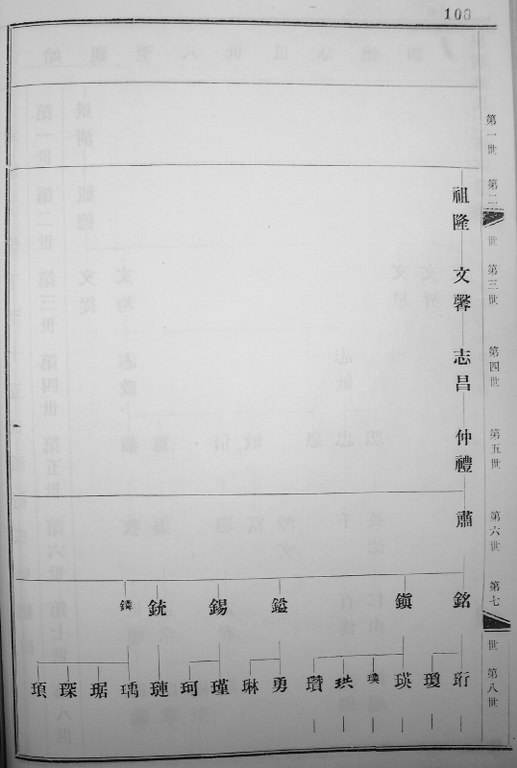 100
第一世
第二世
第三世
第四世
第五世
第六世
第七世
第八世
祖隆
文馨
志昌
仲禮
蕭
銘
鎭
鎰
錫
銃
珩
瓊
瑛
珙
瓚
勇
琳
瑾
珂
璉
瑀
琚
琛
頊